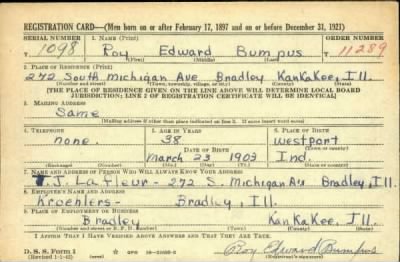 REGISTRATION CARD—(Men born on or after February 17, 1897 and on or before December 31, 1921)
SERIAL NUMBER 1. NAME (Print) ORDER NUMBER
T 1098 Roy Edward Bumpus 11289
(First) (Middle) (Last)
2. PLACE OF RESIDENCE (Print)
272 South Michigan Ave Bradley KanKaKee, Ill.
(Number and street) (Town, township, village, or city) (County) (State)
[THE PLACE OF RESIDENCE GIVEN ON THE LINE ABOVE WILL DETERMINE LOCAL BOARD
JURISDICTION; LINE 2 OF REGISTRATION CERTIFICATE WILL BE IDENTICAL]
3. MAILING ADDRESS
Same
[Mailing address if other than place indicated on line 2. If same insert word same]
4. TELEPHONE 5. AGE IN YEARS 6. PLACE OF BIRTH
none. 38 Westport
DATE OF BIRTH (Town or county)
March 23 1903 Ind.
(Exchange) (Number) (Mo.) (Day) (Yr.) (State or country)
7. NAME AND ADDRESS OF PERSON WHO WILL ALWAYS KNOW YOUR ADDRESS
272 S. Michigan Av Bradley, Ill.
8. EMPLOYER'S NAME AND ADDRESS
Kroehlers- Bradley, Ill.
9. PLACE OF EMPLOYMENT OR BUSINESS
Bradley KanKaKee Ill.
(Number and street or R. F. D. number) (Town) (County) (State)
I AFFIRM THAT I HAVE VERIFIED ABOVE ANSWERS AND THAT THEY ARE TRUE.
D. S. S. Form 1
(Revised 1-1-42) (over) Roy Edward Bumpus